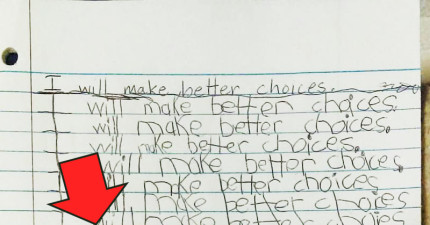 I will make better choices.
I will make better choices.
I will make better choices.
I will make better choices.
I will make better choices
I will make better choices
will make better choices
will make better choices